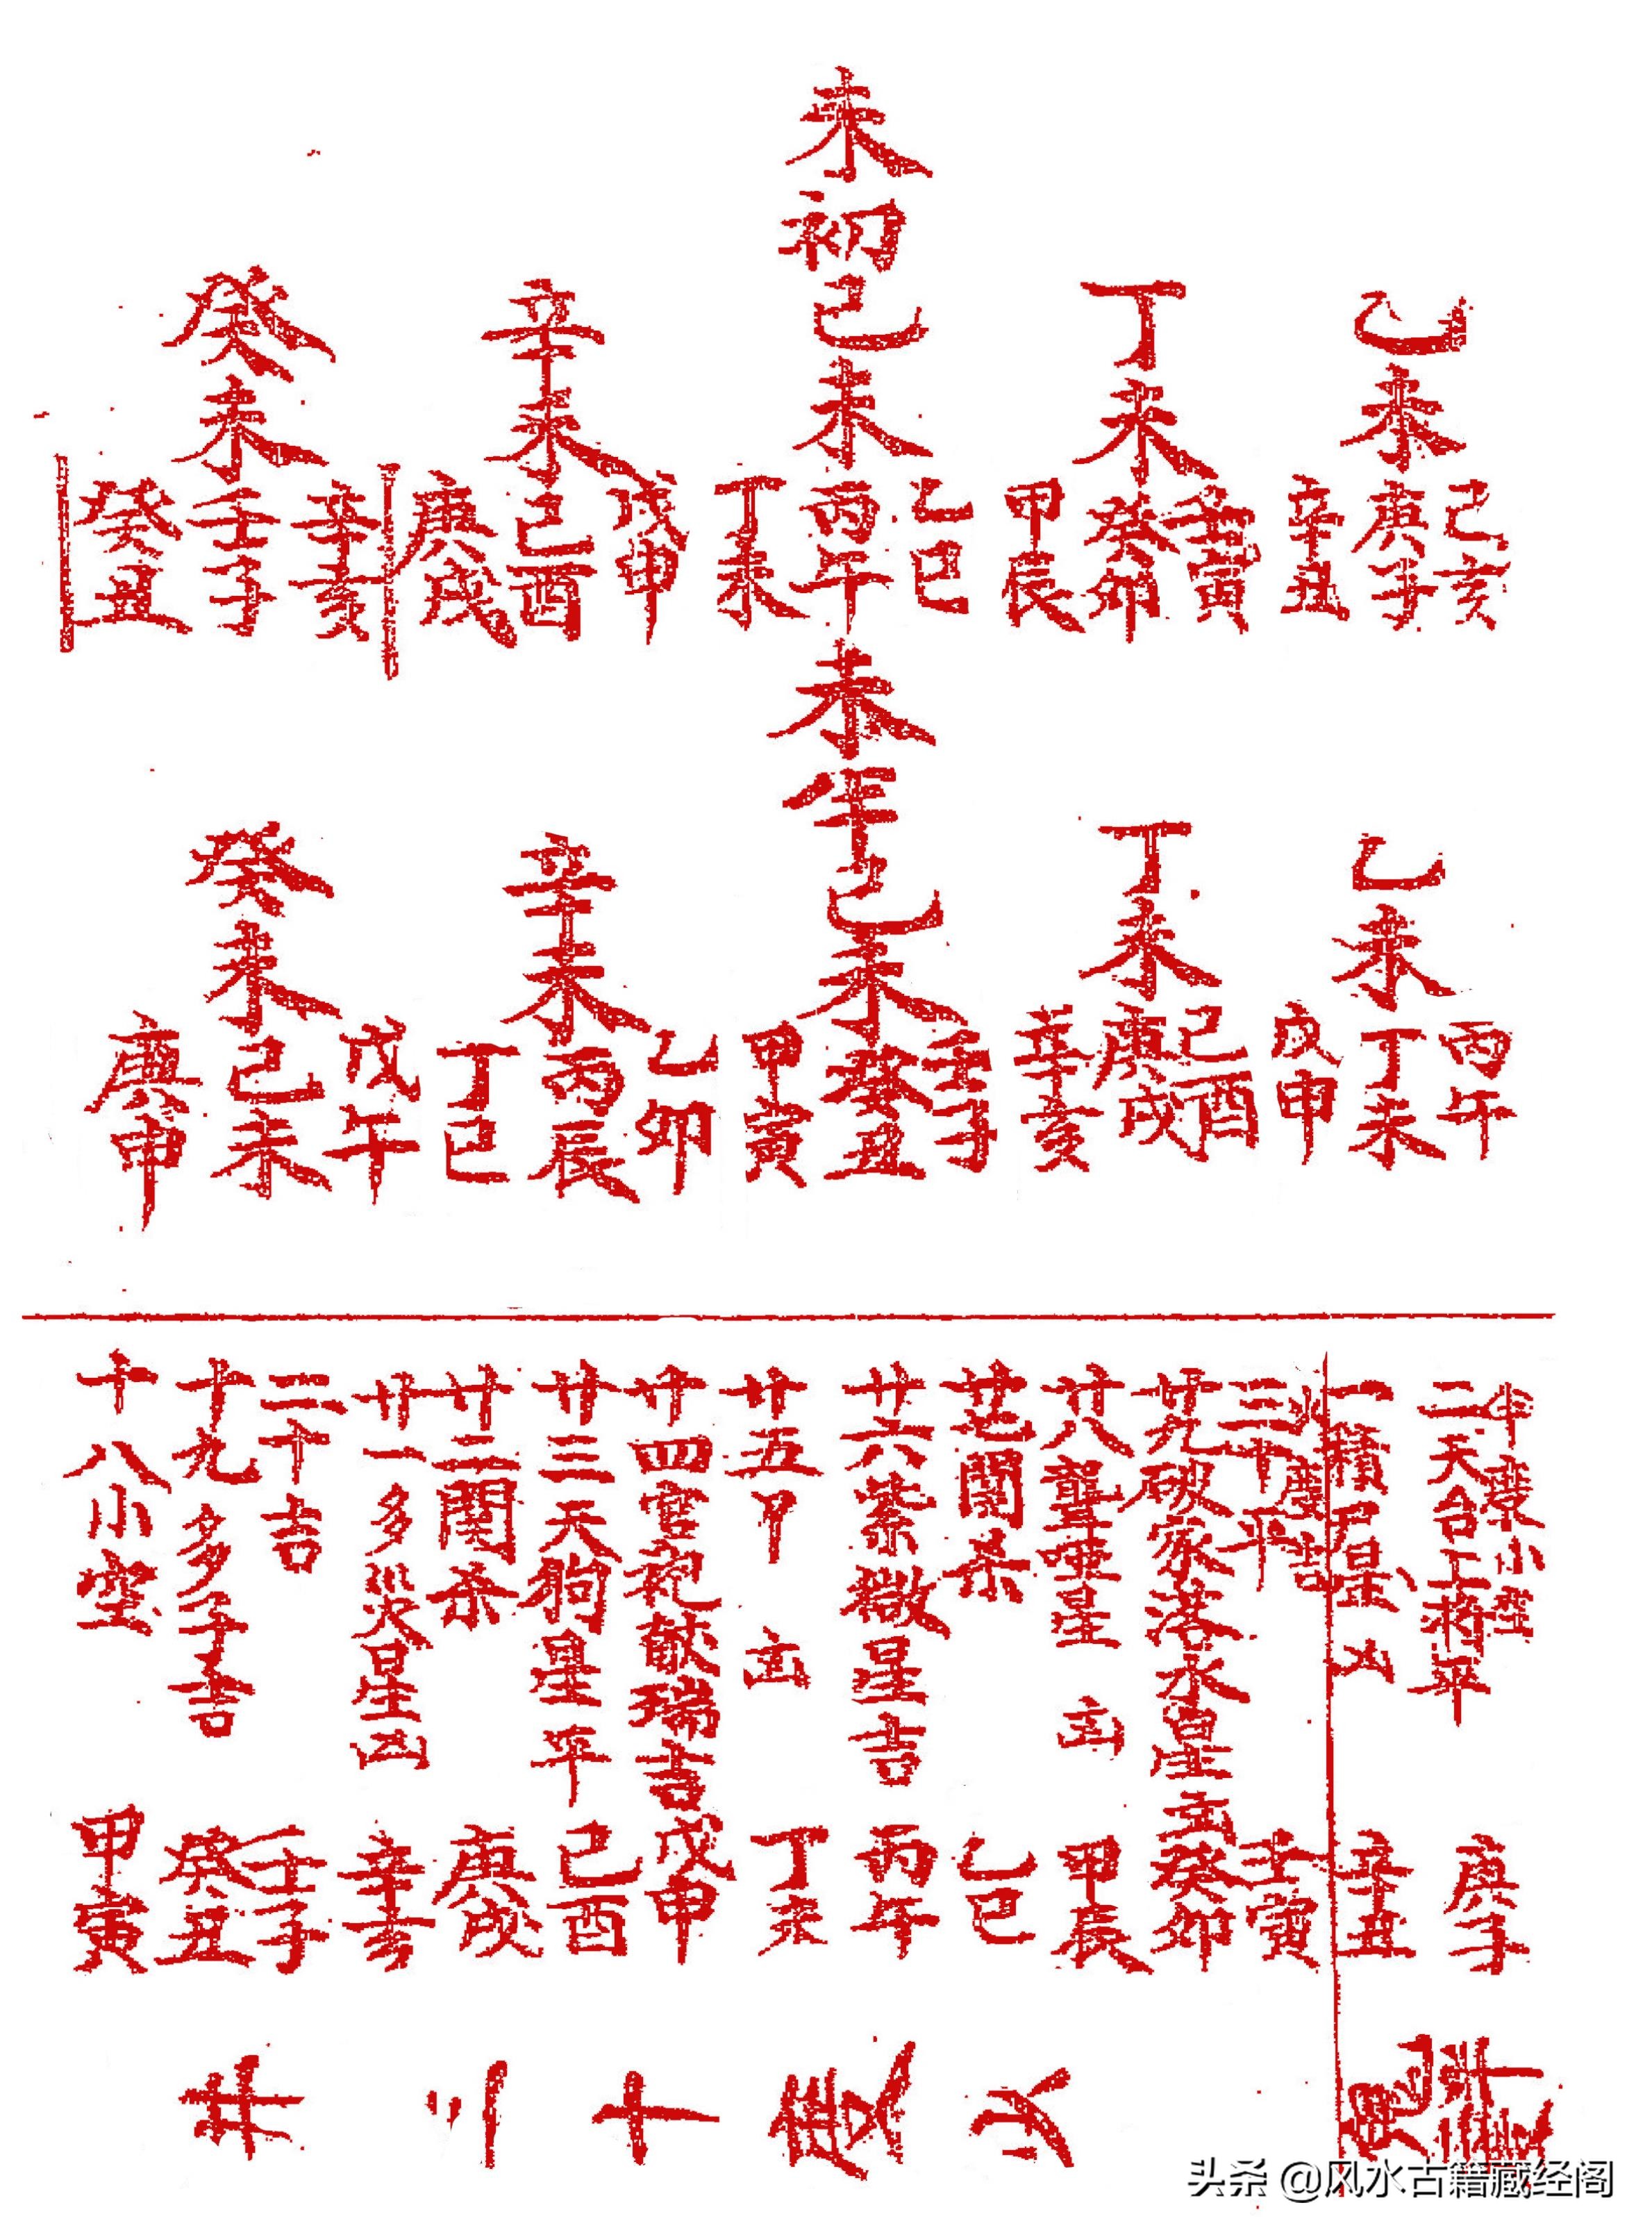 未初
乙未
己亥
庚子
辛丑
丁未
壬寅
癸卯
甲辰
己未
乙巳
丙午
丁未
辛未
戊申
己酉
庚戌
癸未
辛亥
壬子
癸丑
未
乙未
丙午
丁未
戊申
丁未
己酉
庚戌
辛亥
己未
壬子
癸丑
甲寅
辛未
乙卯
丙辰
丁巳
癸未
戊午
己未
庚申
半度小空
二天台上将平 庚子
一積尸星凶 辛丑
三十平 壬寅
廿九破家落水星凶 癸卯
廿八聾啞星凶 甲辰
廿七関杀 乙巳
廿六紫微星吉 丙午
廿五甲凶 丁未
廿四官袍献瑞吉 戊申
廿三天狗星平 己酉
廿二関杀 庚戌
廿一多災星凶 辛亥
二十吉 壬子
十九多子吉 癸丑
十八小空 甲寅
头条 @风水古籍藏经阁